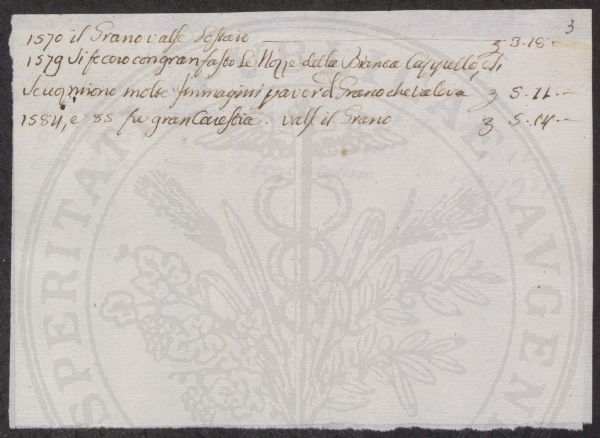 3
1570 il Grano valse lo staio 3 3.18
1579 si fecero con gran fasto le Nozze della Bianca Cappello, e si
scuoprirono molte Immagini p aver d Grano che valeva 3 5.11
1584, e 85 fu gran Carestia. valse il Grano 3 5.14
PERITAT AUGEN